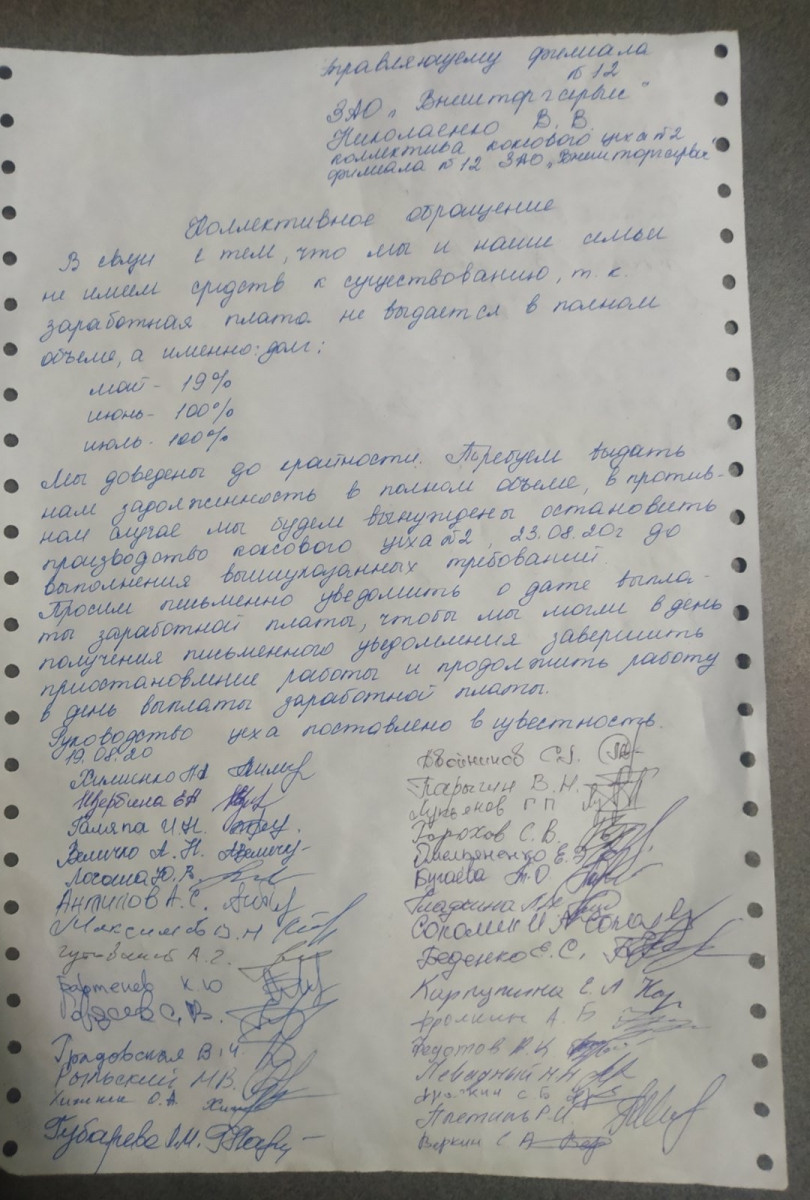 Управляющему филиала
№12
ЗАО „Внешторгсервис"
Николаенко В. В.
коллектива коксового цеха №2
филиала №12 ЗАО „Внешторгсервис"
Коллективное обращение
В связи с тем, что мы и наши семьи
не имеем средств к существованию, т. к.
заработная плата не выдается в полном
объеме, а именно: долг:
май - 19%
июнь - 100%
июль - 100%
Мы доведены до крайности. Требуем выдать
нам задолженность в полном объеме, в против-
ном случае мы будем вынуждены остановить
производство коксового цеха №2, 23.08.20г до
выполнения вышеуказанных требований.
Просим письменно уведомить о дате выпла-
ты заработной платы, чтобы мы могли в день
получения письменного уведомления завершить
приостановление работы и продолжить работу
в день выплаты заработной платы.
Руководство цеха поставлено в известность.
19.08.20
Химинко
Щербина ЕА
Галяпа И.Н.
Величко А. Н.
Ю.В.
Антипов А. С.
Максимов О.Н
А.Г.
Бартенев К.Ю
С. В.
Градовская В.Ч.
Рыльский Н.В.
О.А.
Губарева Л.М.
Двойников С.
Парыгин В.Н.
Лукьянов Г П
Горохов С. В.
Омельяненко Е.
Бугаева Т.О
Гладкина Л.
Соромин И А
Беденко Е. С.
Карпушина Е. Л
Фролкин А. Б
Федотов
Невидный Н Н
С Б
Плетинь Р.И.
Веркин С А